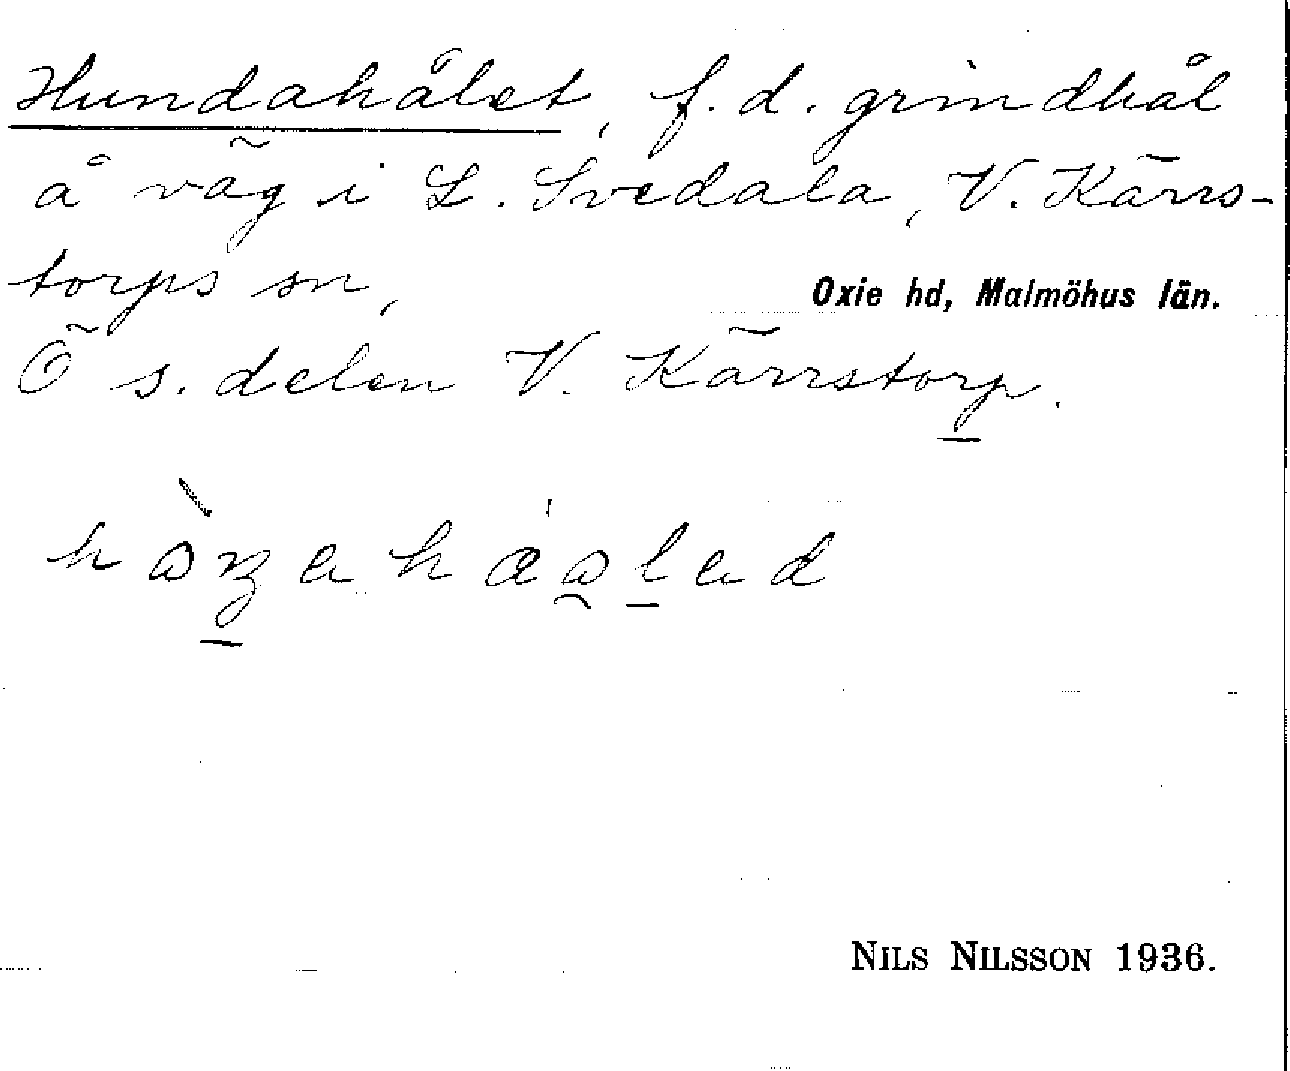 Hundahålet, f. d. grindhål
å väg i L. Svedala, V. Kärrs-
torps sn, Oxie hd, Malmöhus län.
Ö s. delen V. Kärrstorp.
NILS NILSSON 1936.